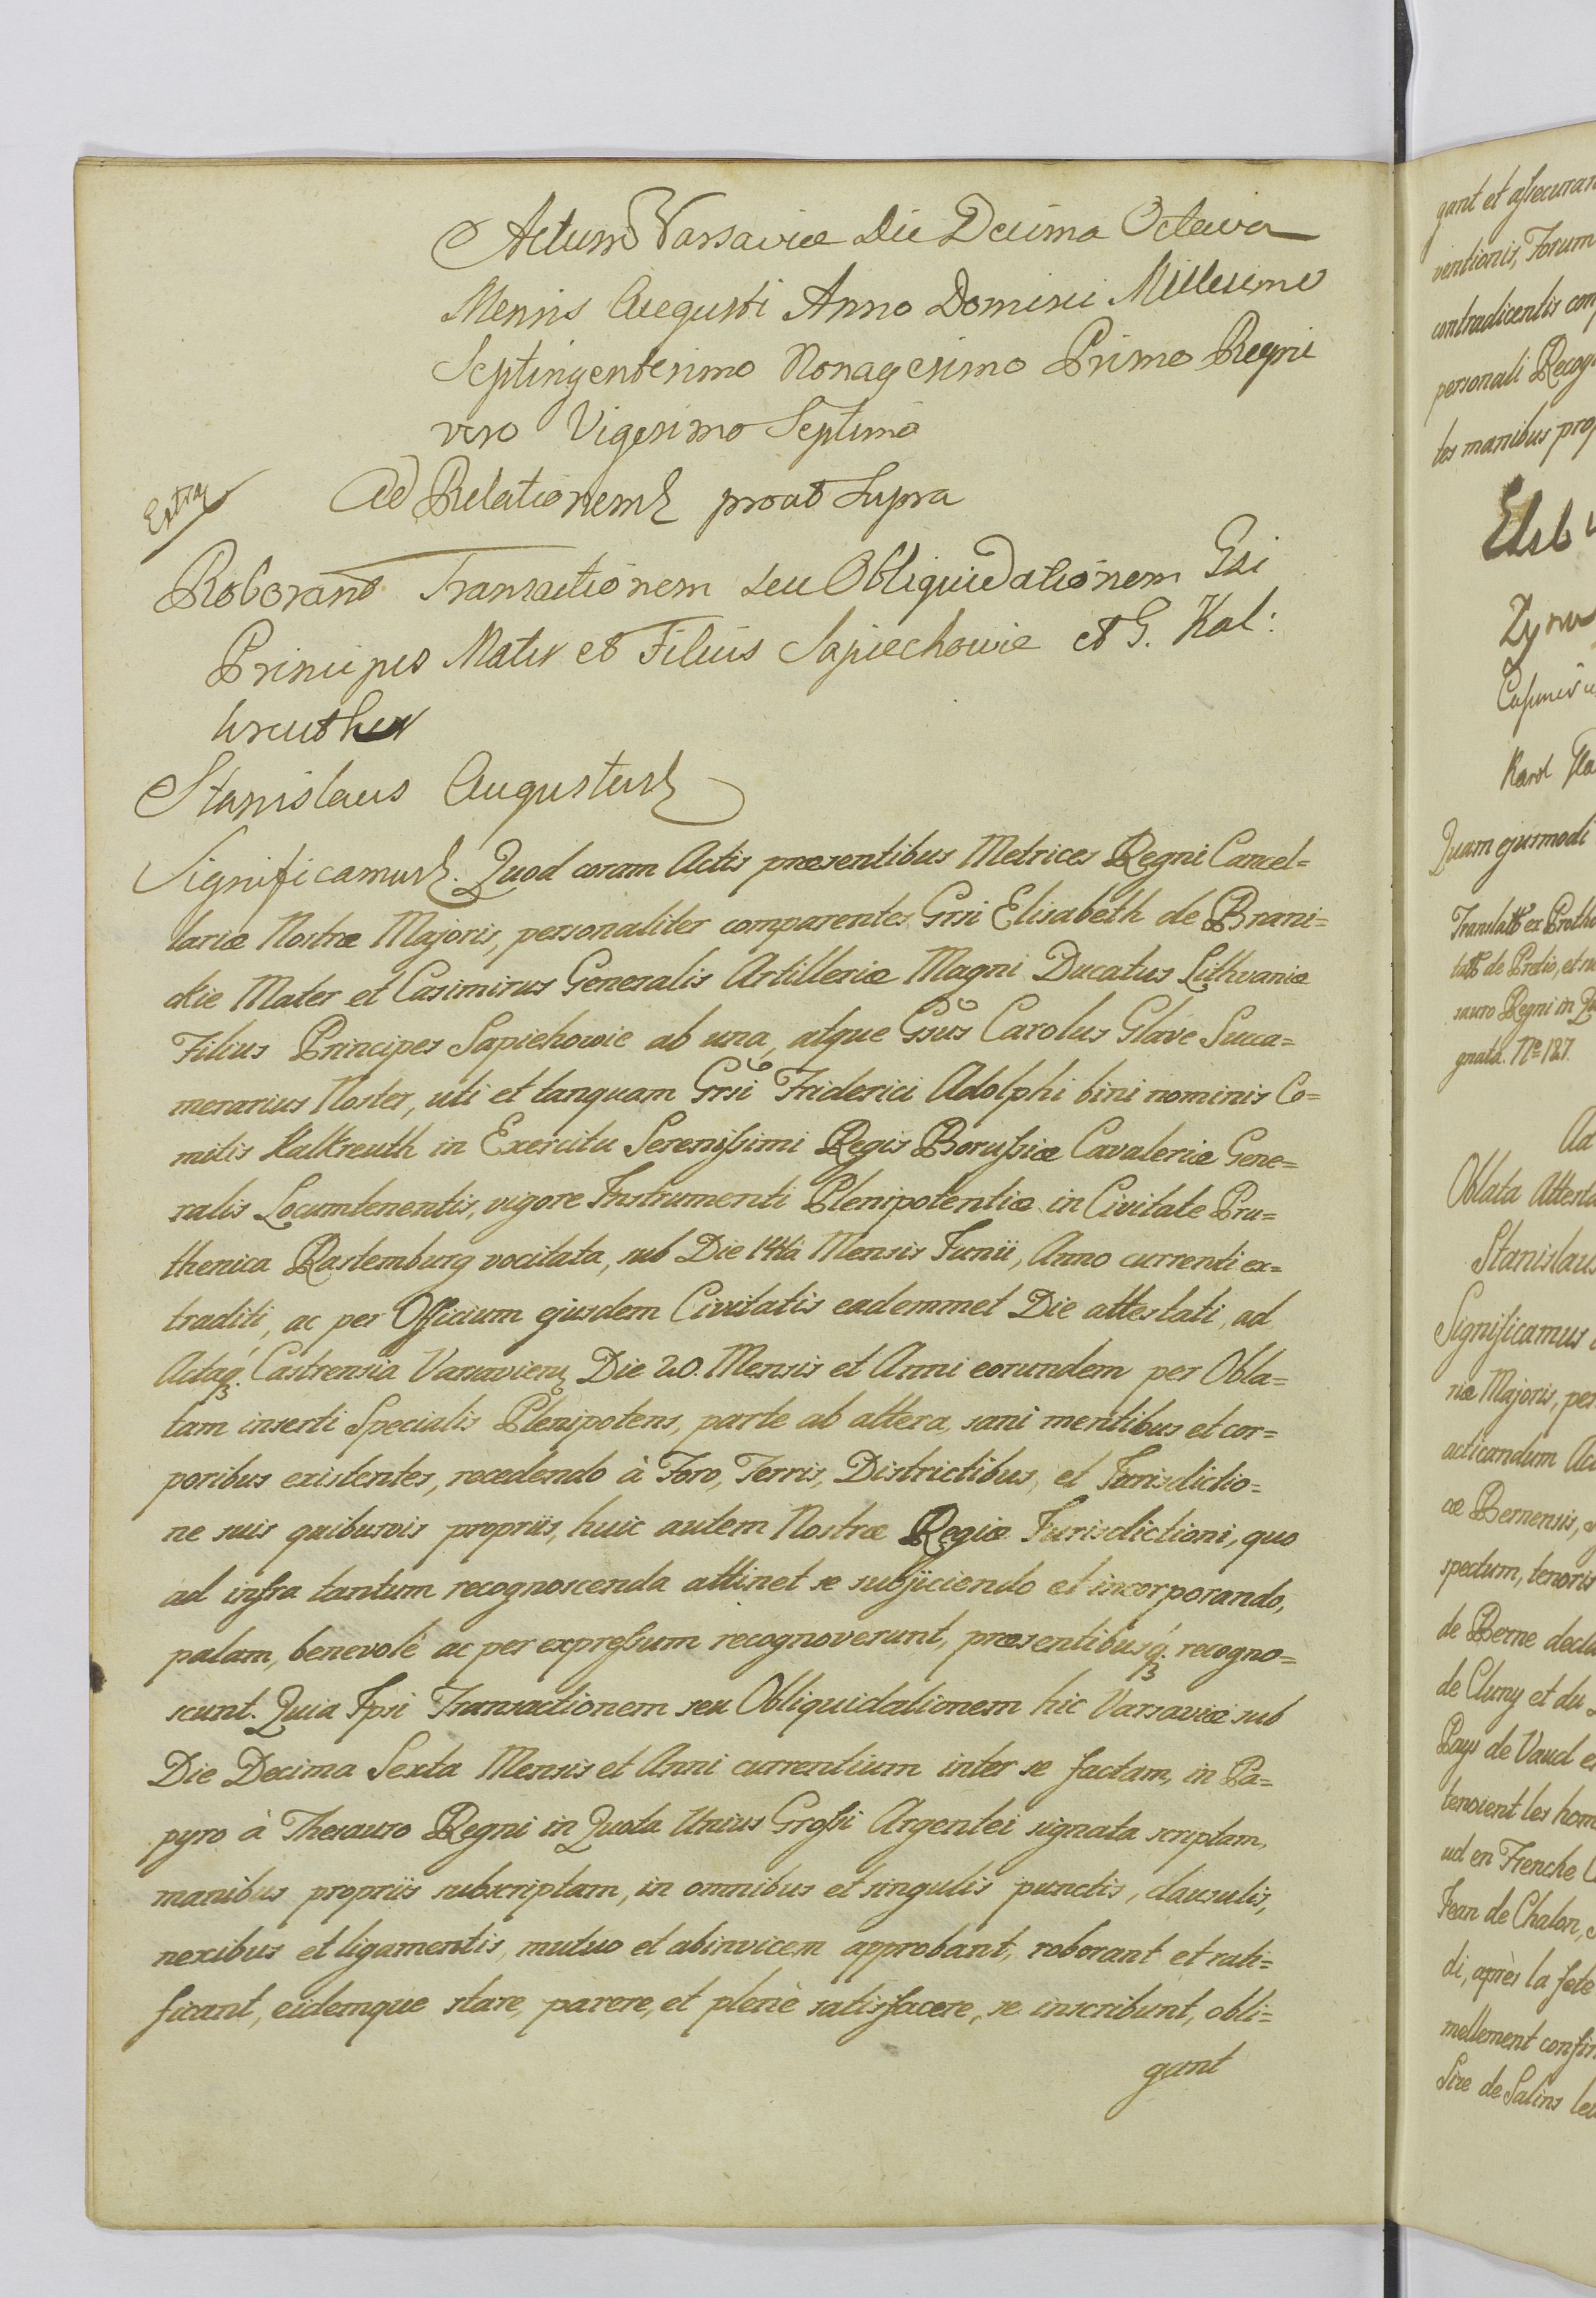 Actum Varsaviæ Die Decima Octava
Mensis Augusti Anno Domini Millesimo
Septingentesimo Nonagesimo Primo Regni
vero Vigesimo Septimo
Extra
Ad Relationem prout Supra
Roborant Transactionem seu Obliquidationem Gsi
Principes Mater et Filius Sapiechowie et G. Kal:
kreuther
Stanislaus Augustus
Significamus. Quod coram Actis præsentibus Metrices Regni Cancel=
lariæ Nostræ Majoris, personaliter comparentes Grsi Elisabeth de Brani=
ckie Mater et Casimirus Generalis Artilleriæ Magni Ducatus Lithvaniæ
Filius Principes Sapiehowie ab una, atque Gsus Carolus Glave Succa=
merarius Noster, uti et tanquam Grsi Friderici Adolphi bini nominis Co=
mitis Kalkreuth in Exercitu Serenissimi Regis Borussiæ Cavaleriæ Gene=
ralis Locumtenentis, vigore Instrumenti Plenipotentiæ in Civitate Pru=
thenica Rastemburg vocitata, sub Die 14ta Mensis Junii, Anno currenti ex=
traditi, ac per Officium ejusdem Civitatis eademmet Die attestati, ad
Actaq; Castrensia Varsaviens Die 20. Mensis et Anni eorundem per Obla=
tam inserti Specialis Plenipotens, parte ab altera, sani mentibus et cor=
poribus existentes, recedendo à Foro, Terris, Districtibus, et Jurisdictio=
ne suis quibusvis propriis, huic autem Nostræ Regiæ Jurisdictioni, quo
ad infra tantum recognoscenda attinet se subjiciendo et incorporando,
palam, benevolè ac per expressum recognoverunt, præsentibusq; recogno=
scunt. Quia Ipsi Transactionem seu Obliquidationem hic Varsaviæ sub
Die Decima Sexta Mensis et Anni currentium inter se factam, in Pa=
pyro à Thesauro Regni in Quota Unius Grossi Argentei signata scriptam,
manibus propriis subscriptam, in omnibus et singulis punctis, clausulis,
nexibus et ligamentis, mutuo et abinvicem approbant, roborant et rati=
ficant, eidemque stare, parere, et plenè satisfacere, se inscribunt, obli=
gant
gant et assecuran
ventionis, Forum
contradicentis com
personali Recog
tes manibus prop
Elsb
Casimir
Karol Gla
Quam ejusmodi
Translatt ex Protho
tatt de Predio, et
sauro Regni in Qu
gnata. No 187.
Ad
Oblata Attesta
Stanislaus
Significamus
riæ Majoris, per
acticandum Ac
cæ Bernensis,
spectum, tenoris
de Berne decla
de Cluny et du
Pays de Vaud e
tenoient les hom
ud en Frenche
Jean de Chalon,
di, après la fete
mellement confir
Sire de Salins